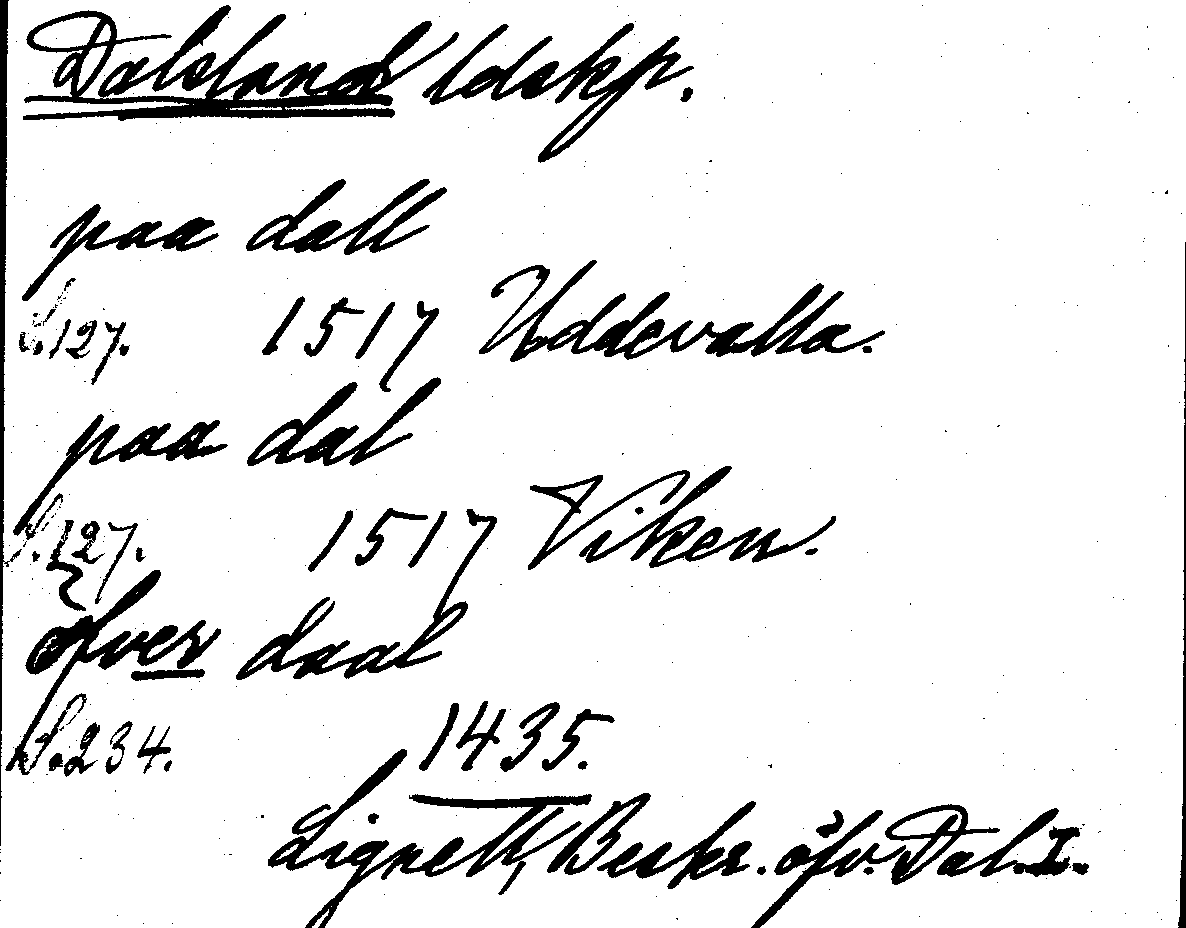 Dalsland ldskp.
paa dall
S. 127. 1517 Uddevalla.
paa dal
S. 127. 1517 Viken.
öfver daal
S. 234. 1435.
Lignell, Beskr. öfv. Dal. I.